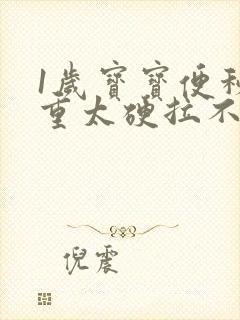 1歲寶寶便秘
重太硬拉不
倪震